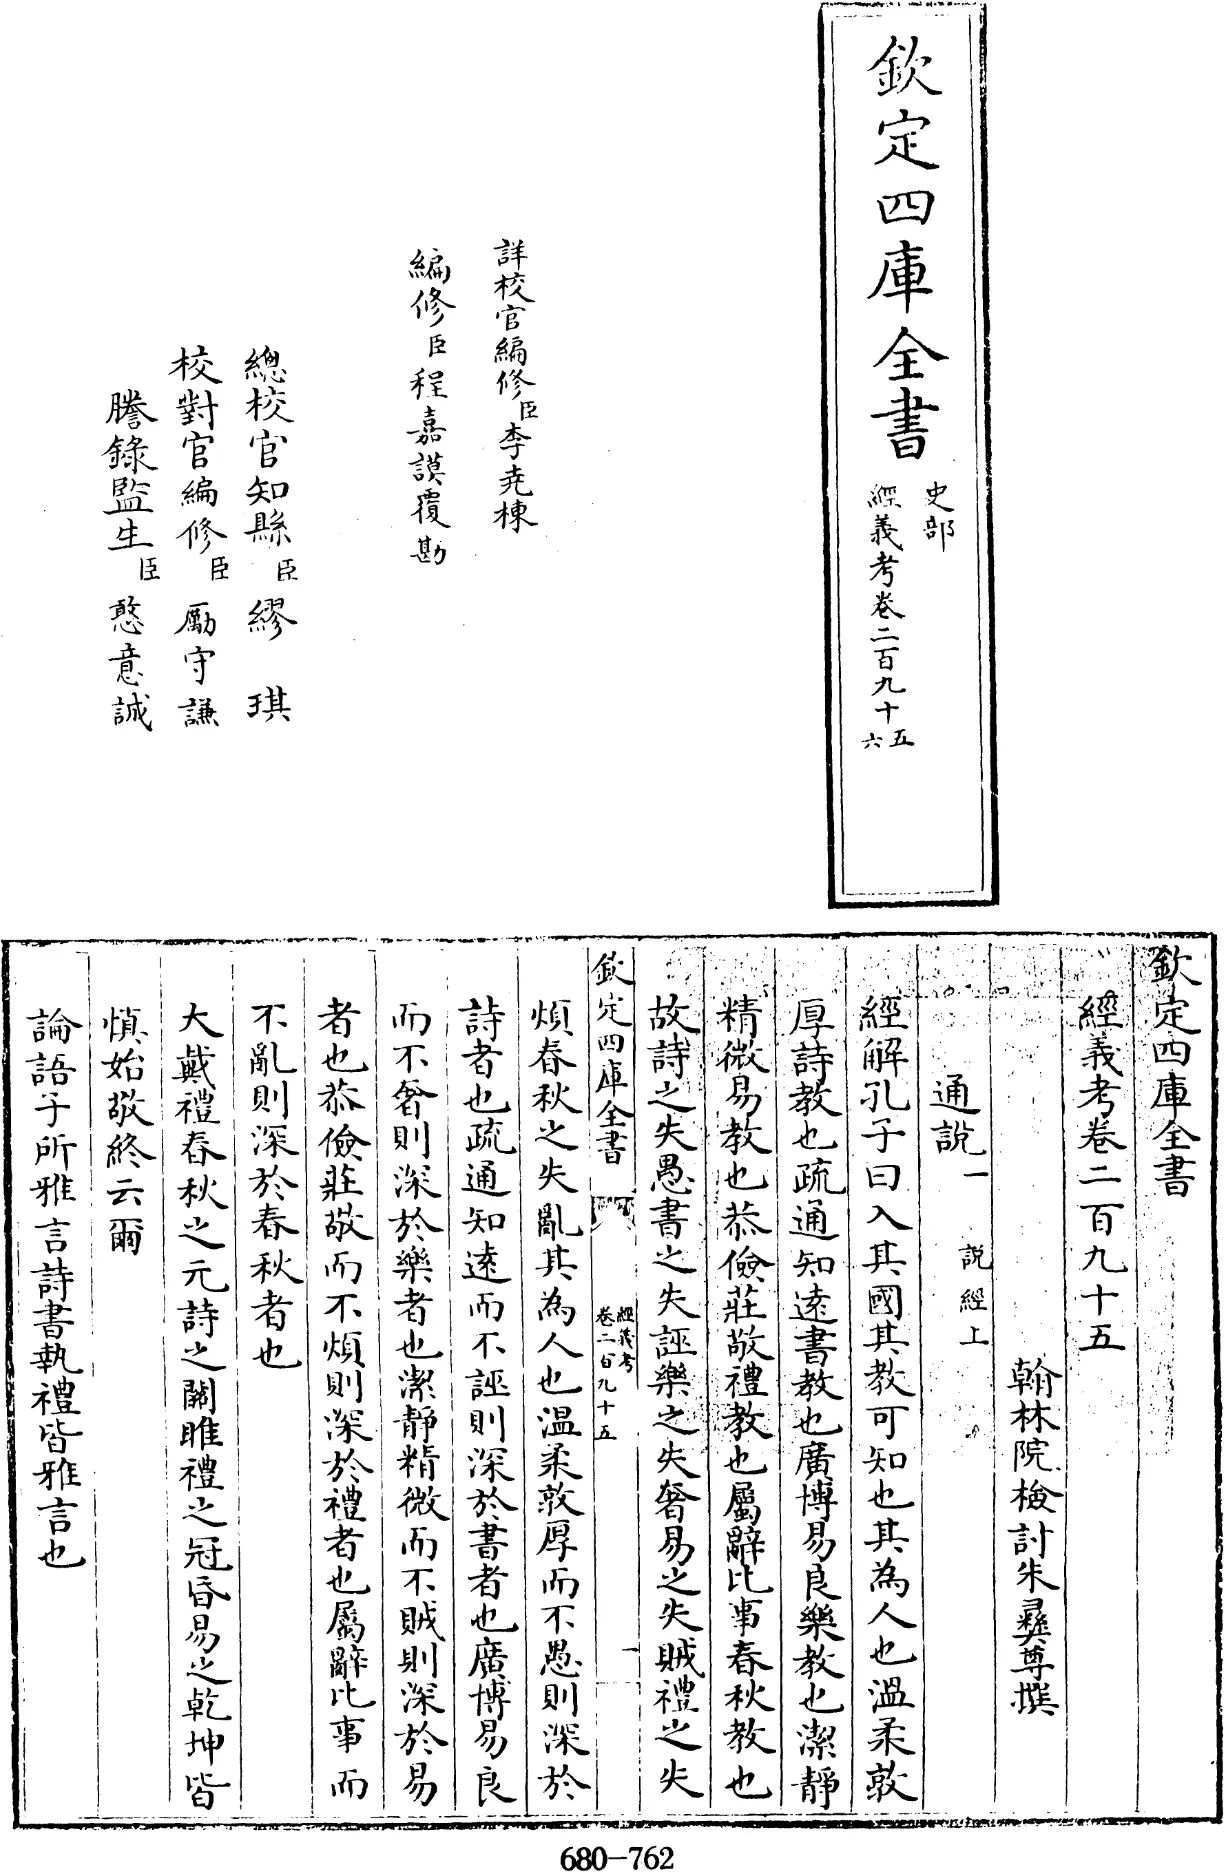 欽定四庫全書
史部
經義考卷二百九十五
六
詳校官編修臣李堯棟
編修臣程嘉謨覆勘
總校官知縣臣繆琪
校對官編修臣勵守謙
謄錄監生臣憨意誠
欽定四庫全書
經義考卷二百九十五
翰林院檢討朱彝尊撰
通說一 說經上
經解孔子曰入其國其教可知也其為人也溫柔敦
厚詩教也疏通知遠書教也廣博易良樂教也潔靜
精微易教也恭儉莊敬禮教也屬辭比事春秋教也
故詩之失愚書之失誣樂之失奢易之失賊禮之失
欽定四庫全書
經義考
卷二百九十五
一
煩春秋之失亂其為人也溫柔敦厚而不愚則深於
詩者也疏通知遠而不誣則深於書者也廣博易良
而不奢則深於樂者也潔靜精微而不賊則深於易
者也恭儉莊敬而不煩則深於禮者也屬辭比事而
不亂則深於春秋者也
大戴禮春秋之元詩之關雎禮之冠昏易之乾坤皆
慎始敬終云爾
論語子所雅言詩書執禮皆雅言也
680-762